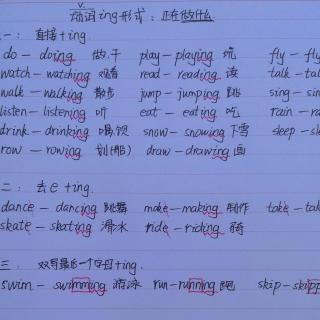 v.
动词ing形式：正在做什么
一：直接+ing.
do — doing 做,干 play — playing 玩 fly — fly
watch — watching 观看 read — reading 读 talk — talk
walk — walking 散步 jump — jumping 跳 sing — sin
listen — listening 听 eat — eating 吃 rain — ra
drink — drinking 喝,饮 snow — snowing 下雪 sleep — sle
row — rowing 划(船) draw — drawing 画
二：去e+ing.
dance — dancing 跳舞 make — making 制作 take — tak
skate — skating 滑冰 ride — riding 骑
三：双写最后一个字母+ing.
swim — swimming 游泳 run — running 跑 skip — skipp